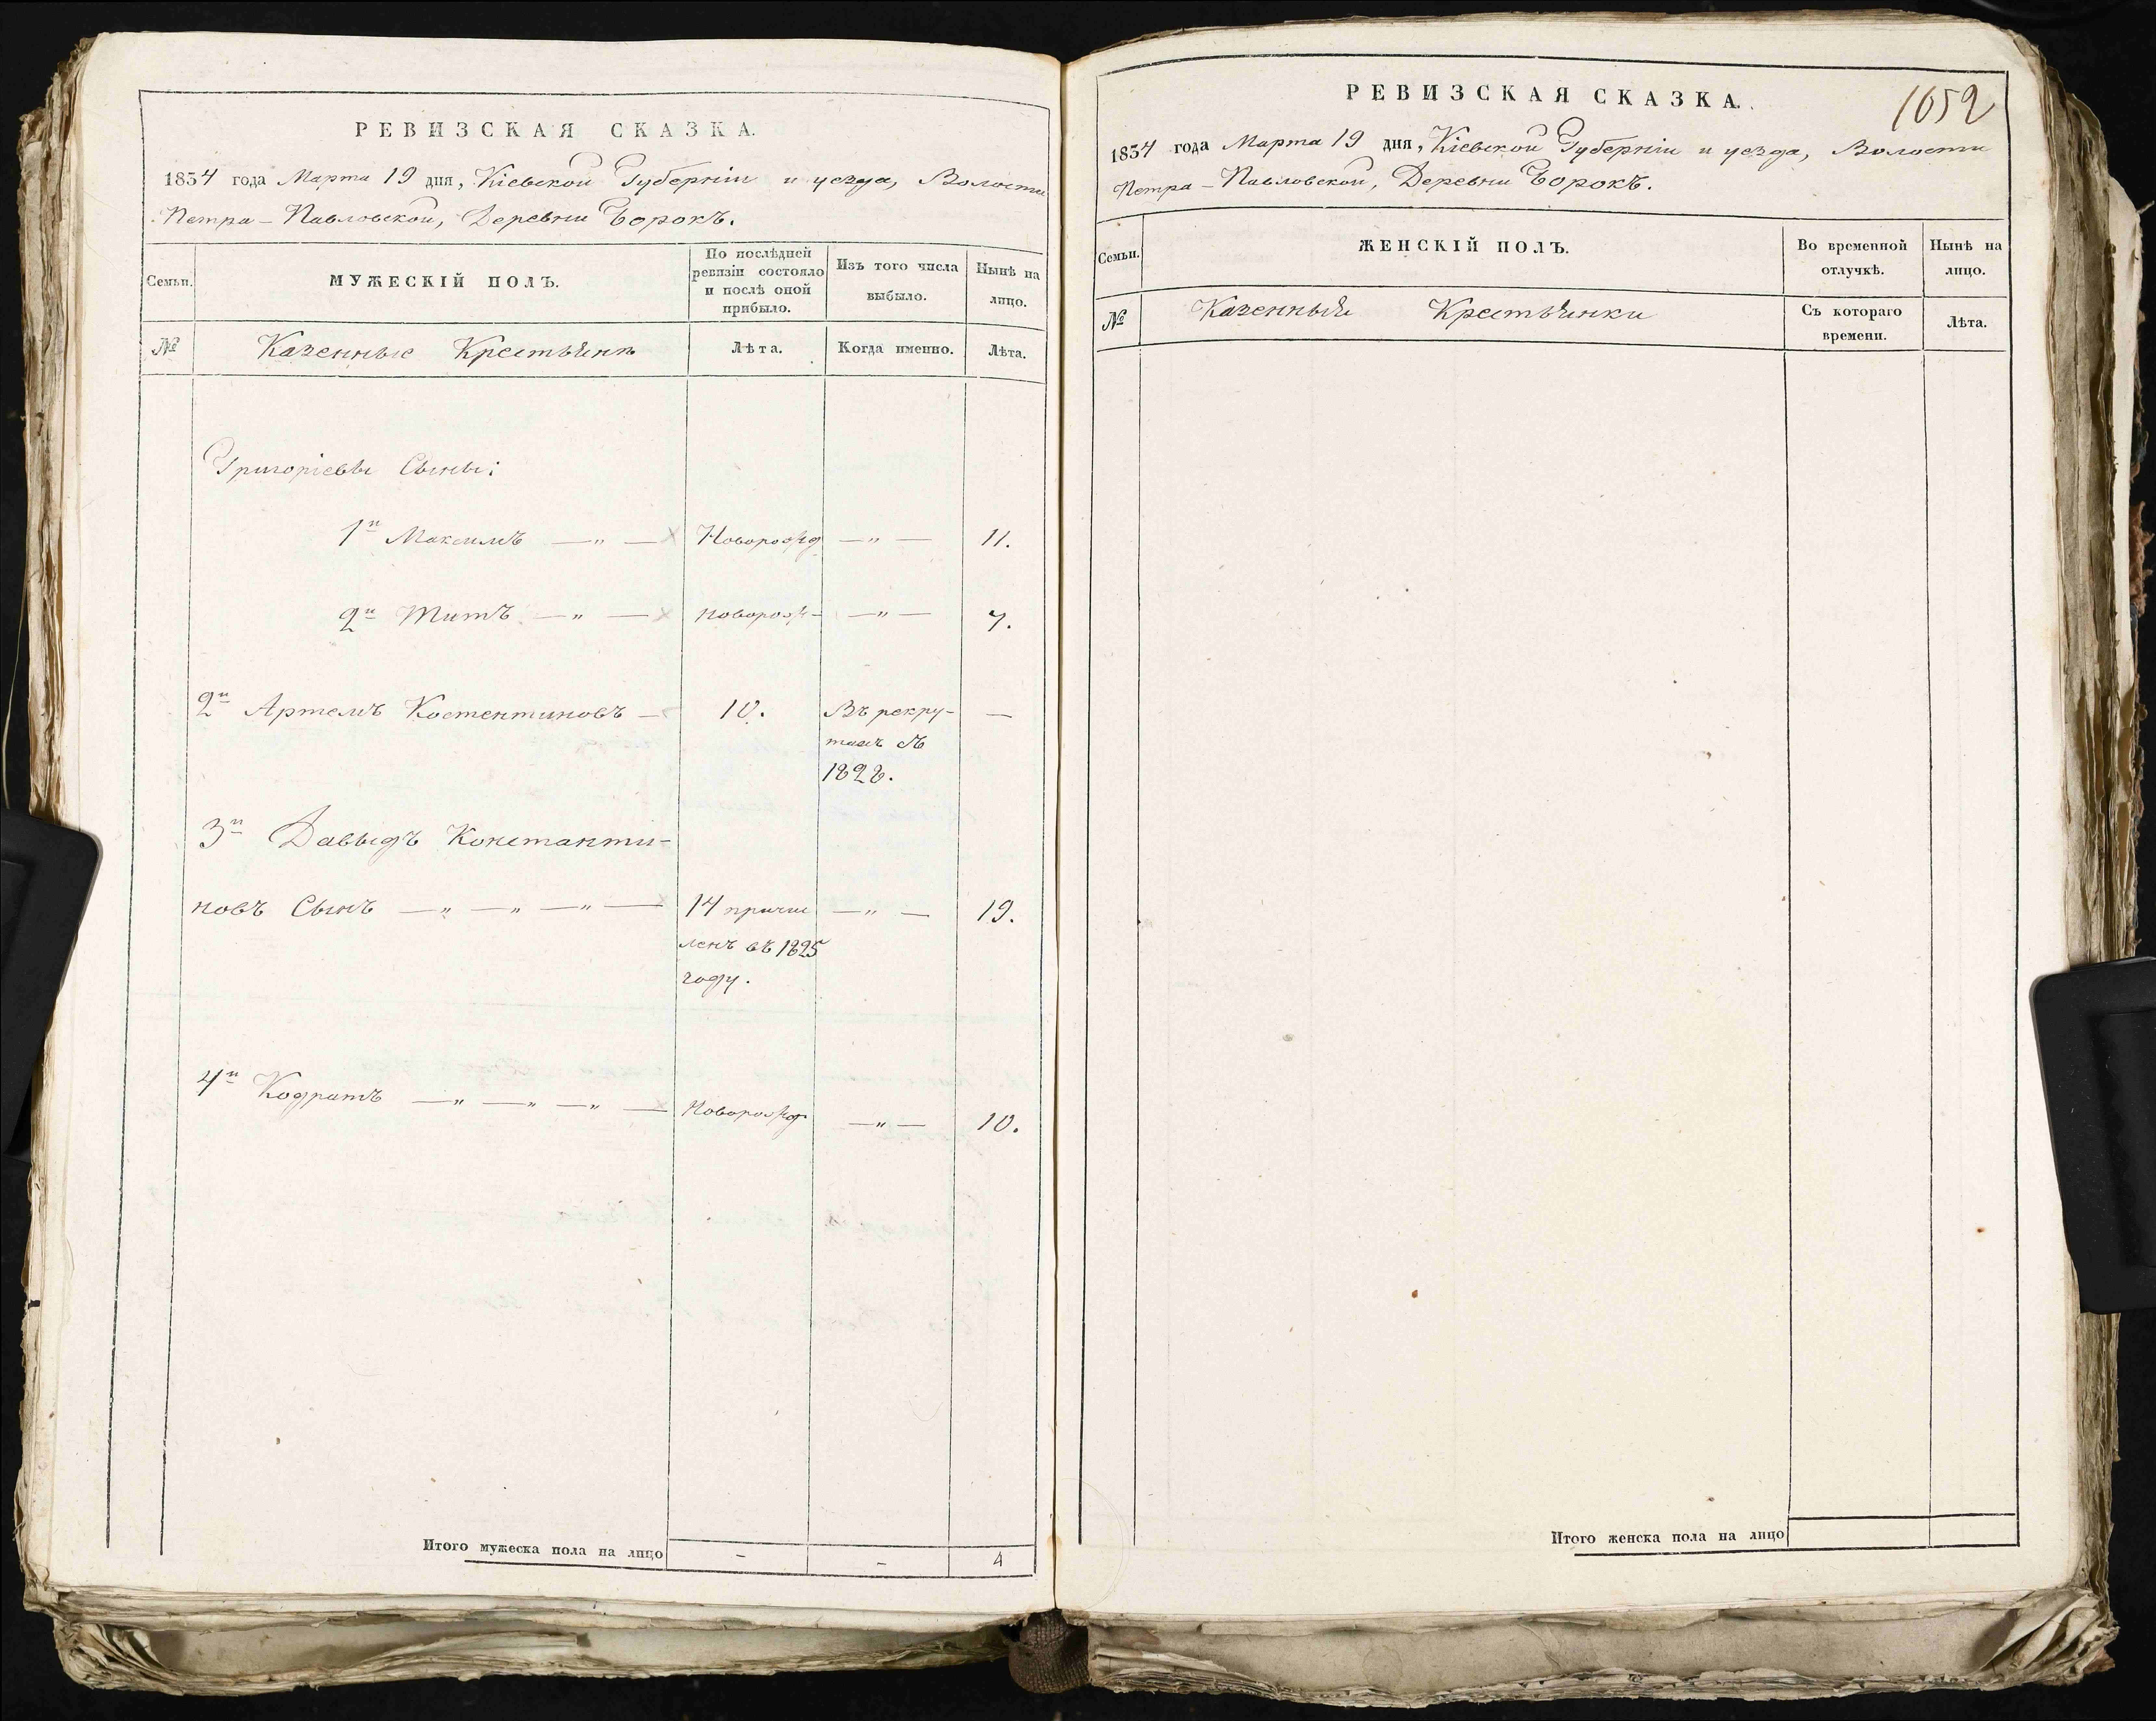 РЕВИЗСКАЯ СКАЗКА.
1834 года Марта 19 дня, Кіевской Губерніи и уезда, Волости
Петра-Павловской, Деревни Борокъ.
Семьи.
МУЖЕСКІЙ ПОЛЪ.
По послѣдней
ревизіи состояло
и послѣ оной
прибыло.
Изъ того числа
выбыло.
Нынѣ на
лицо.
№
Казенные Крестьяне
Лѣта.
Когда именно.
Лѣта.
Григоріевы Сыны:
1й Максимъ — „ — Новорожд — „ — 11.
2й Титъ — „ — новорож- — „ — 7.
2й Артемъ Костентиновъ — 10. Въ рекру- —
тахъ съ
1828.
3й Давыдъ Константи-
новъ Сынъ — „ — „ — „ — 14 причи — „ — 19.
ленъ въ 1825
году.
4й Кодратъ — „ — „ — „ — Новорожд — „ — 10.
Итого мужеска пола на лицо - - 4
РЕВИЗСКАЯ СКАЗКА.
1052
1834 года Марта 19 дня, Кіевской Губерніи и уезда, Волости
Петра-Павловской, Деревни Борокъ.
Семьи.
ЖЕНСКІЙ ПОЛЪ.
Во временной
отлучкѣ.
Нынѣ на
лицо.
№
Казенныя Крестьянки
Съ котораго
времени.
Лѣта.
Итого женска пола на лицо